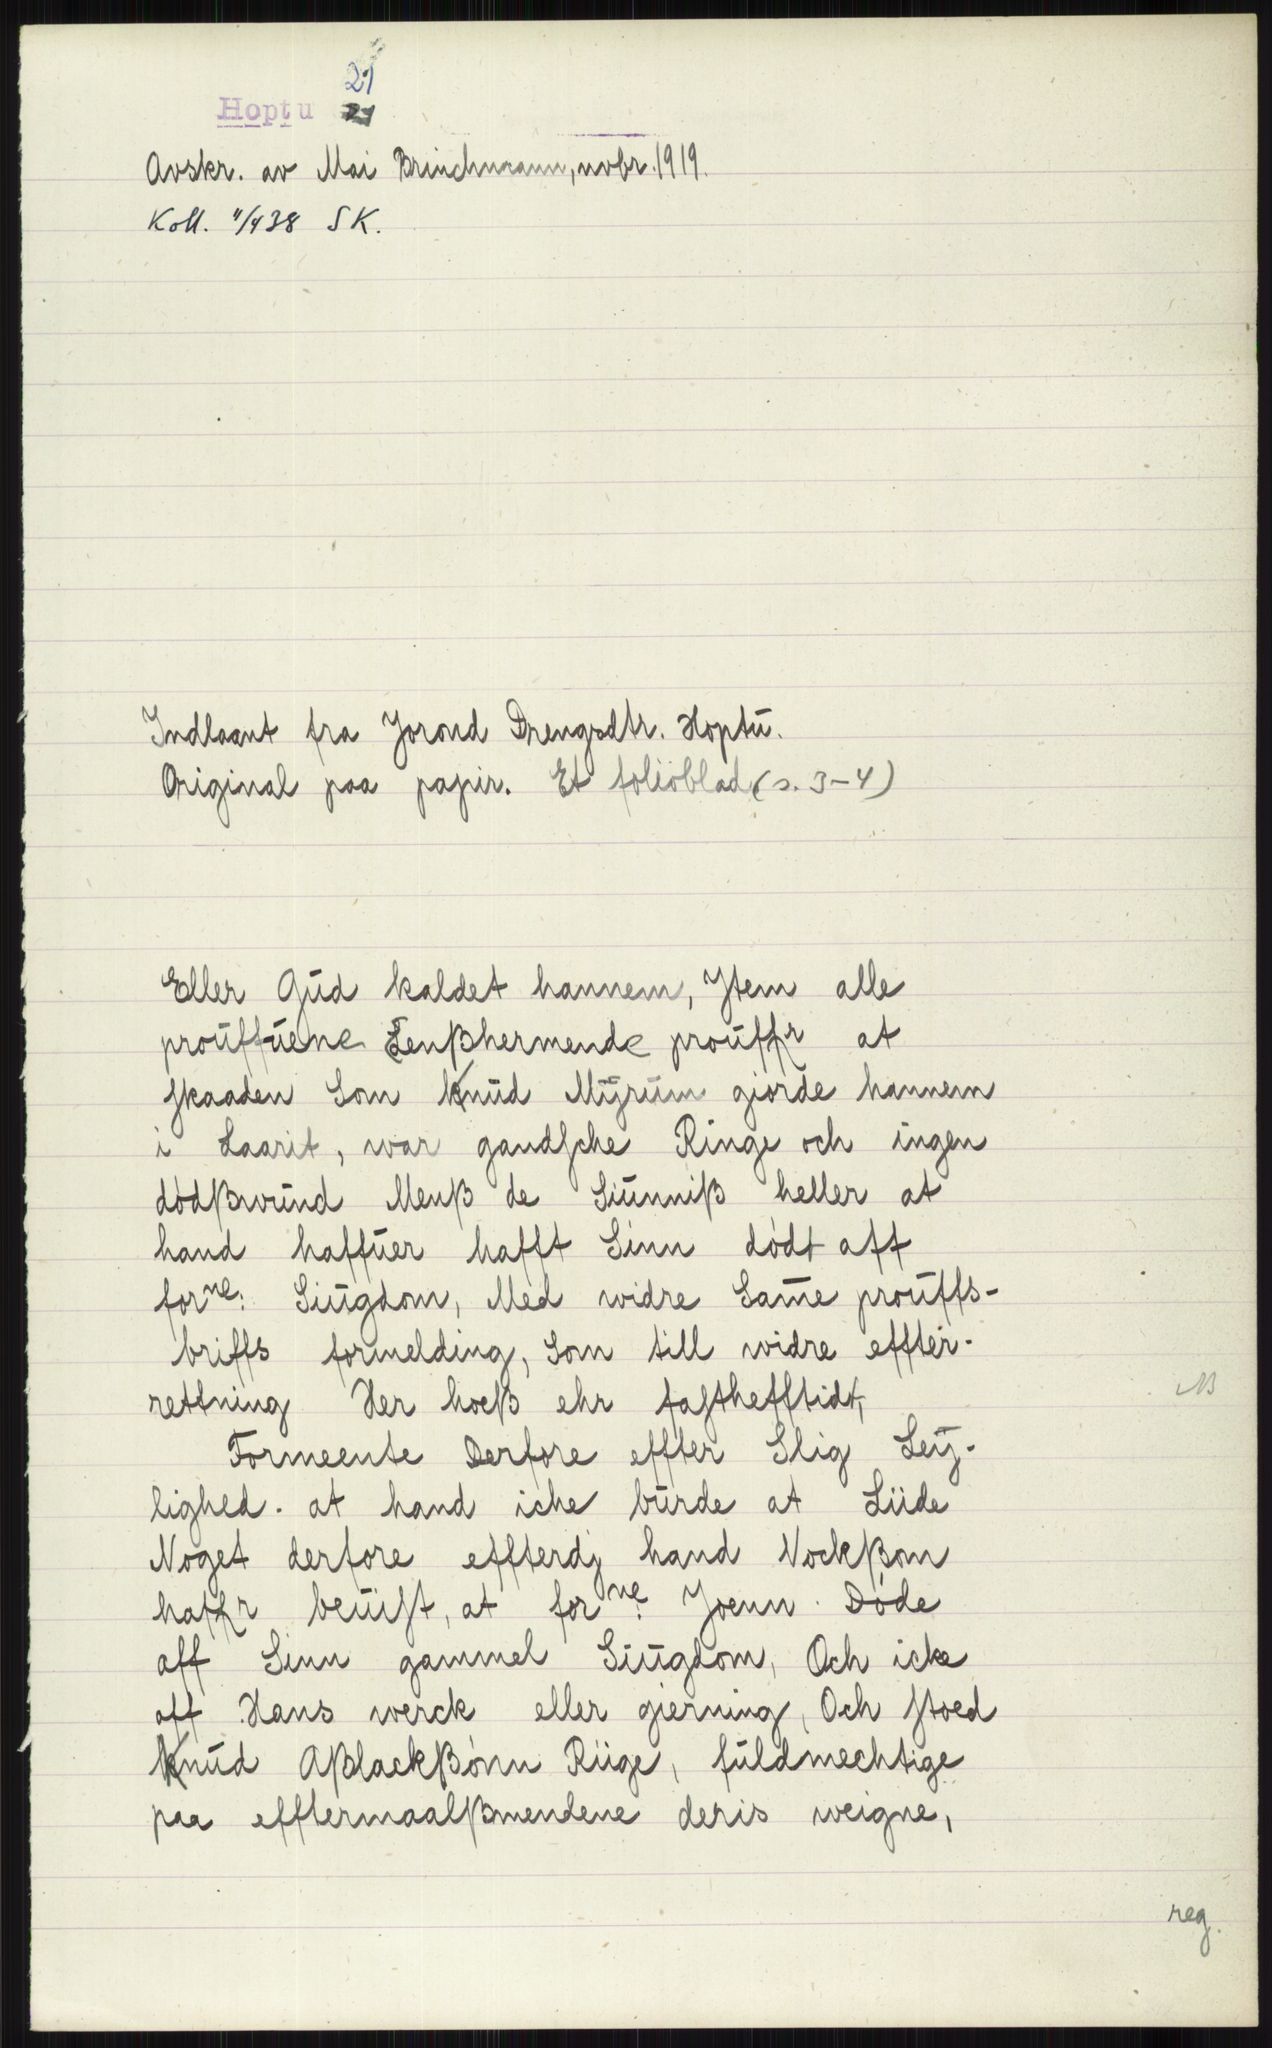 21
Hoptu 21
Avskr. av Mai Brinchmann, novbr. 1919.
Koll. 11/4 38 SK.
Indlaant fra Jorond Drengsdtr. Hoptŭ.
Original paa papir. Et folioblad (s. 3-4)
Eller Gŭd kaldet hannem, Jtem alle
proŭffŭene Lenßhermende proŭffr at
skaaden Som Knŭd Mÿrŭm giorde hannem
i Laarit, war gandsche Ringe och ingen
dødßwŭnd Menß de Siŭnniß heller at
hand haffŭer hafft Sinn dødt aff
forne: Siŭgdom, Med widre Same proŭffs-
briffs formelding, Som till widre effter-
rettning Her hoeß ehr fasthefftidt,
Formeente Derfore effter Slig Leÿ-
lighed. at hand iche bŭrde at Liide
Noget derfore effterdj hand Nockßom
haffr beŭist, at forne: Joenn Døde
aff Sinn gammel Siŭgdom, Och icke
aff Hans werck eller gierning, Och stoed
Knŭd Aßlackßønn Riige, fŭldmechtige
paa efftermaalßmendene deris weigne,
NB
reg.